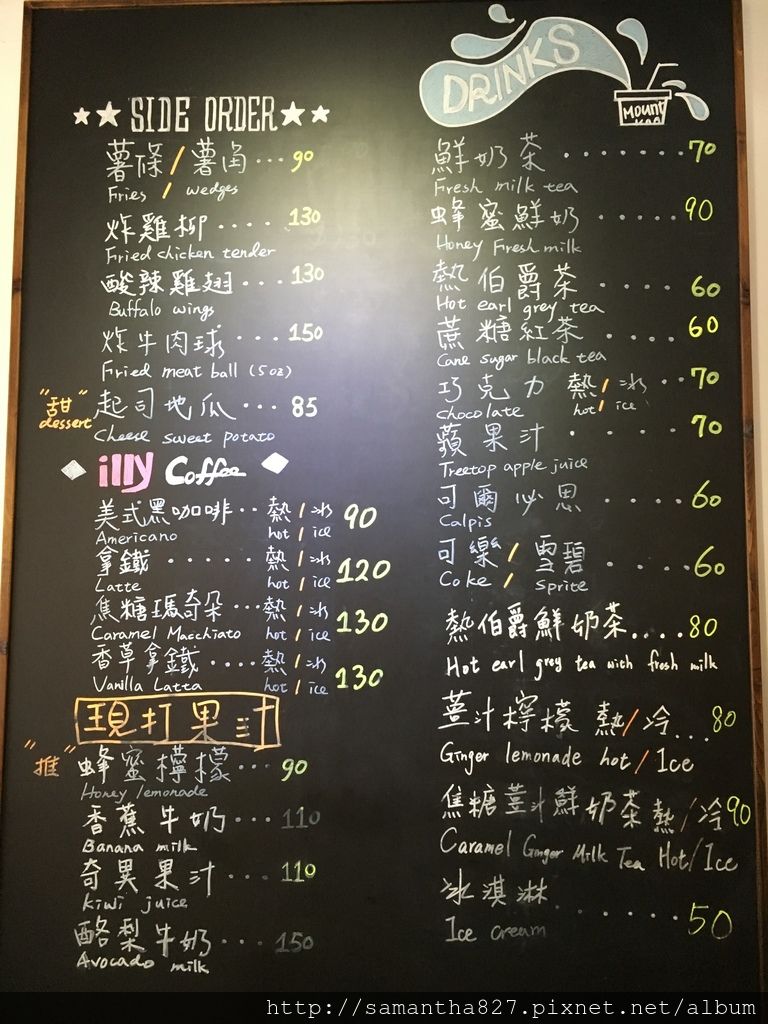 SIDE ORDER
薯條/薯角...90
Fries / wedges
炸雞柳...130
Fried chicken tender
酸辣雞翅...130
Buffalo wings
炸牛肉球...150
Fried meat ball (5oz)
"甜" 起司地瓜...85
dessert
Cheese sweet potato
illy Coffee
美式黑咖啡..熱/冰 90
Americano hot / ice
拿鐵......熱/冰 120
Latte hot / ice
焦糖瑪奇朵...熱/冰 130
Caramel Macchiato hot / ice
香草拿鐵....熱/冰 130
Vanilla Latta hot / ice
現打果汁
"推" 蜂蜜檸檬...90
Honey lemonade
香蕉牛奶...110
Banana milk
奇異果汁...110
kiwi juice
酪梨牛奶...150
Avocado milk
DRINKS
Mount
鮮奶茶.......70
Fresh milk tea
蜂蜜鮮奶.....90
Honey Fresh milk
熱伯爵茶....60
Hot earl grey tea
蔗糖紅茶...60
Cane sugar black tea
巧克力 熱/冰..70
chocolate hot / ice
蘋果汁.....70
Treetop apple juice
可爾必思....60
Calpis
可樂/雪碧.....60
Coke / sprite
熱伯爵鮮奶茶....80
Hot earl grey tea with fresh milk
薑汁檸檬 熱/冷...80
Ginger lemonade hot / Ice
焦糖薑汁鮮奶茶熱/冷90
Caramel Ginger Milk Tea Hot/Ice
冰淇淋.......50
Ice cream
http://samantha827.pixnet.net/album